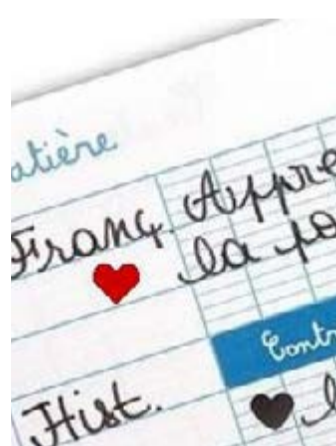 atière
Franç. Appre
la po
Contr
Hist.